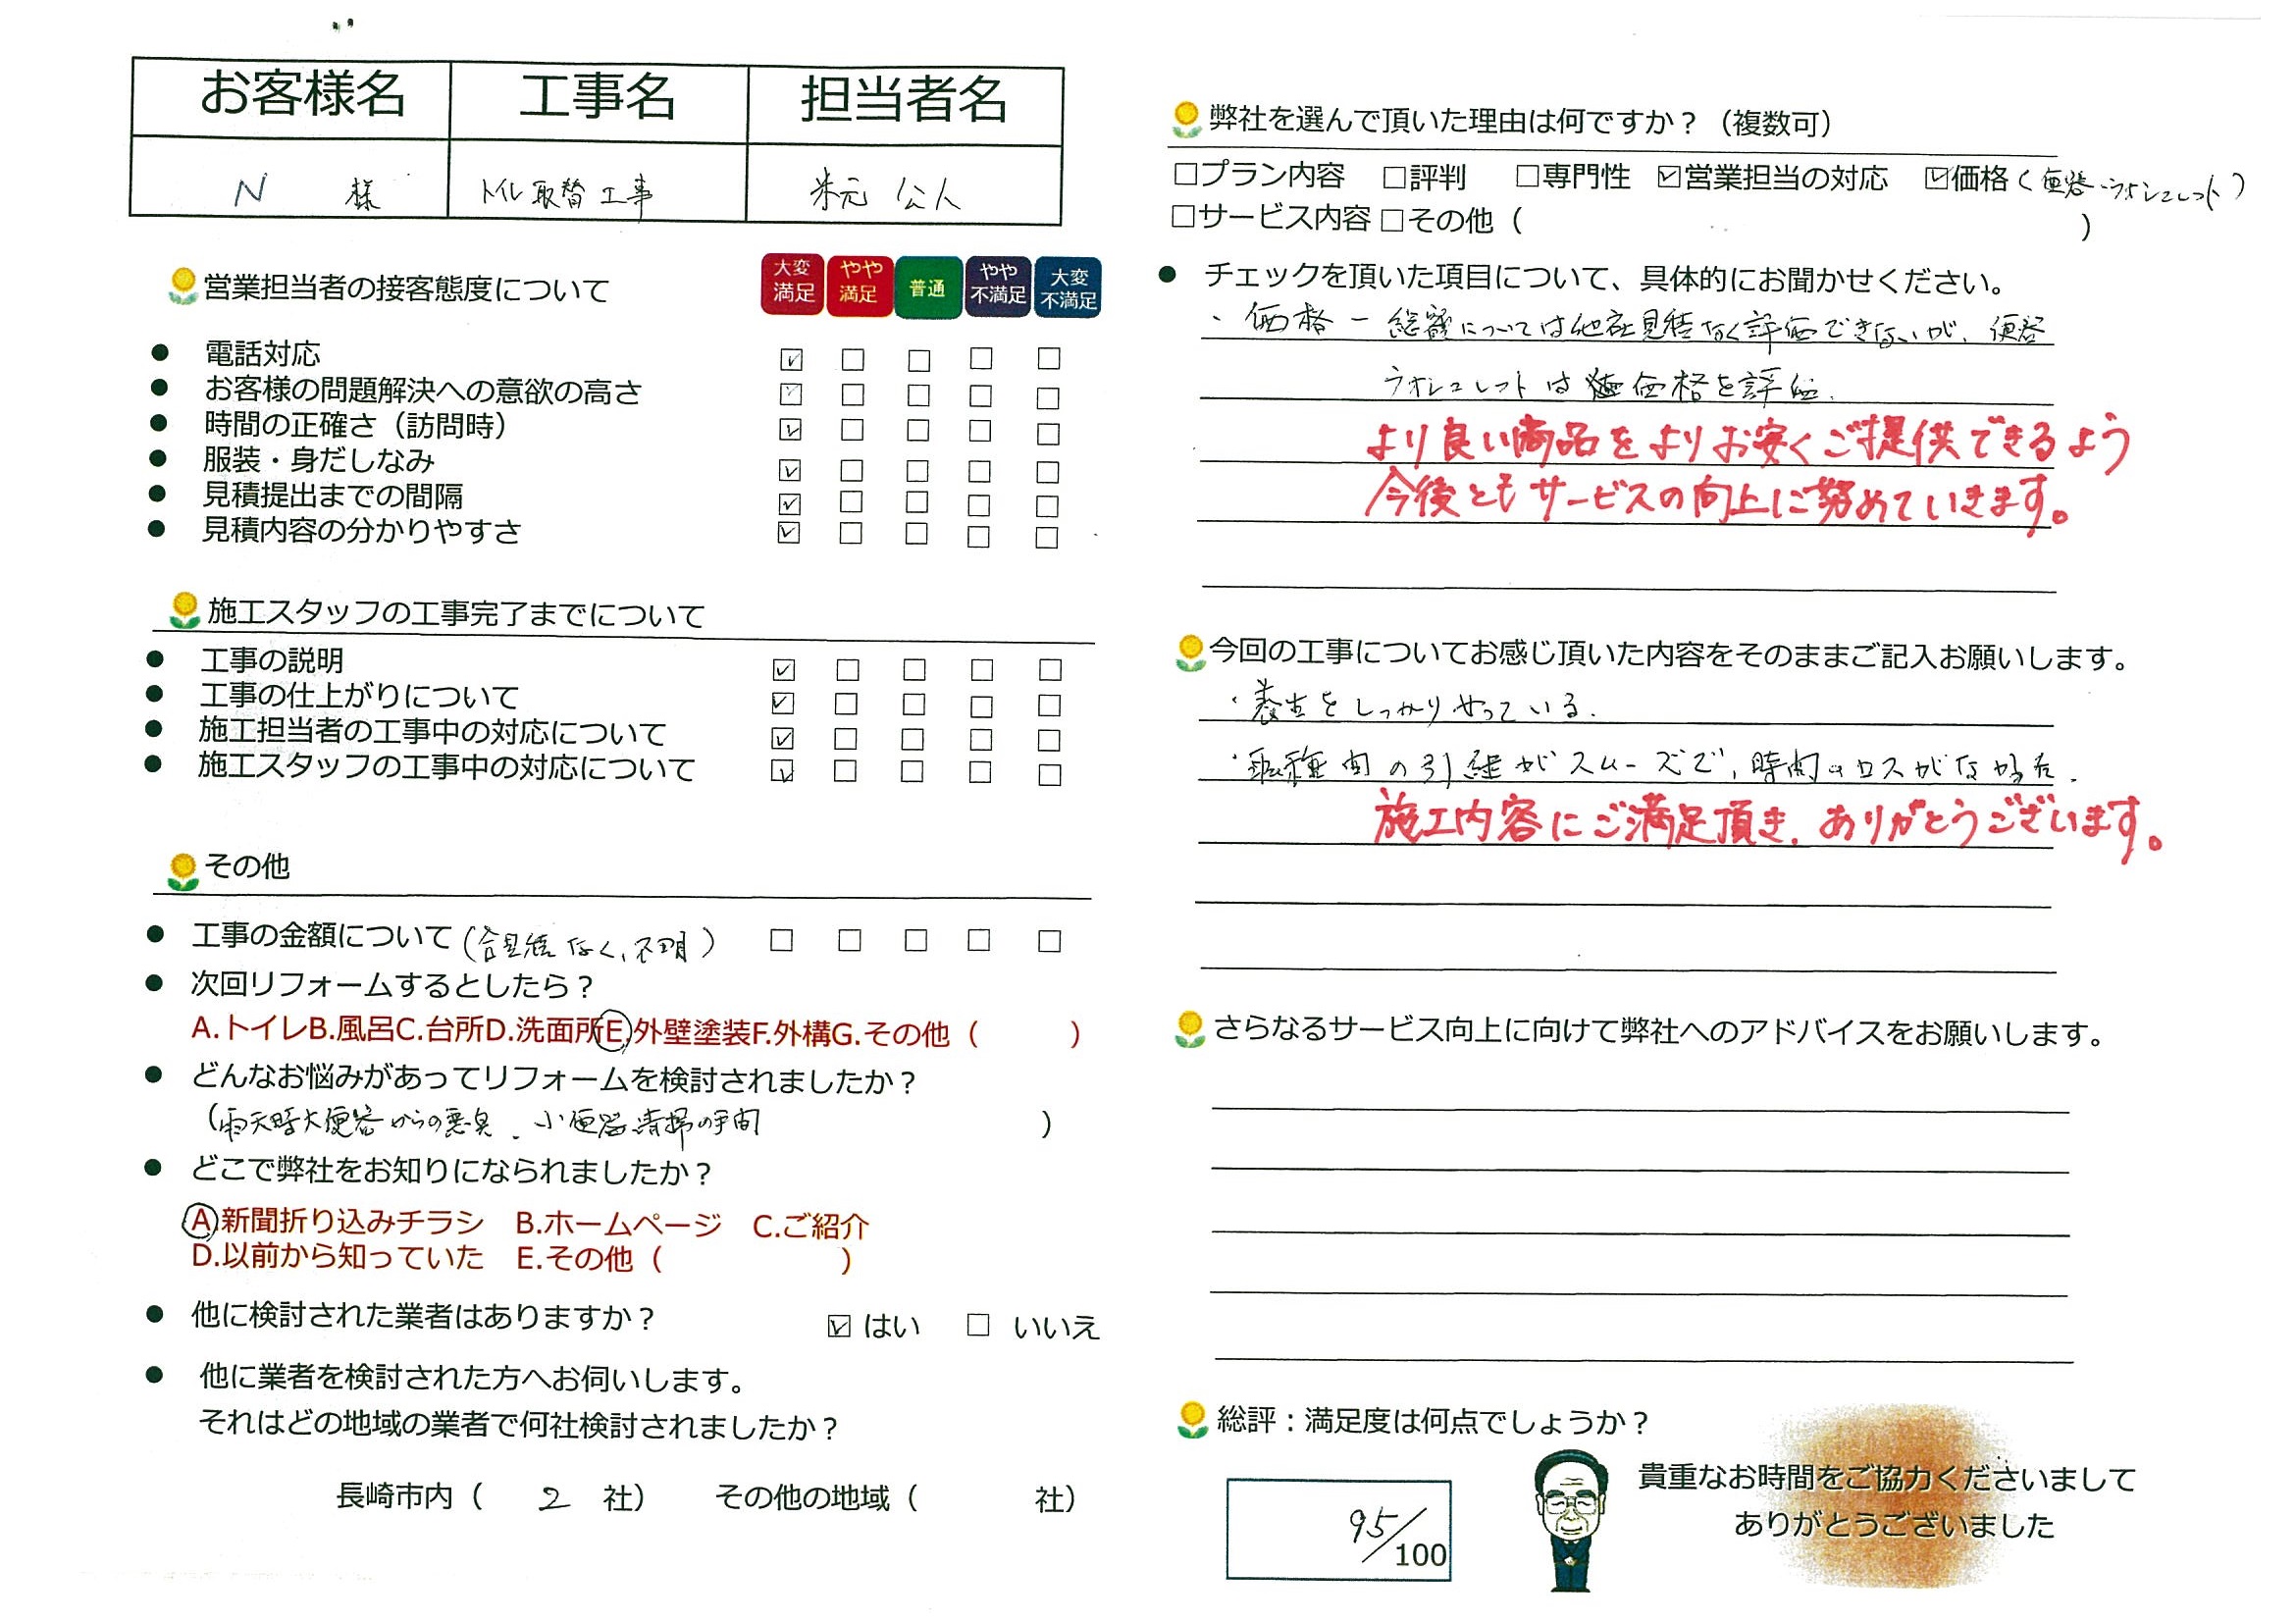 お客様名 工事名 担当者名
N 様 トイレ取替工事 米元 公人
営業担当者の接客態度について 大変満足 やや満足 普通 やや不満足 大変不満足
● 電話対応 ☑ □ □ □ □
● お客様の問題解決への意欲の高さ ☑ □ □ □ □
● 時間の正確さ（訪問時） ☑ □ □ □ □
● 服装・身だしなみ ☑ □ □ □ □
● 見積提出までの間隔 ☑ □ □ □ □
● 見積内容の分かりやすさ ☑ □ □ □ □
施工スタッフの工事完了までについて
● 工事の説明 ☑ □ □ □ □
● 工事の仕上がりについて ☑ □ □ □ □
● 施工担当者の工事中の対応について ☑ □ □ □ □
● 施工スタッフの工事中の対応について ☑ □ □ □ □
その他
● 工事の金額について（合見積なく、不明） □ □ □ □ □
● 次回リフォームするとしたら？
A.トイレB.風呂C.台所D.洗面所E.外壁塗装F.外構G.その他（ ）
● どんなお悩みがあってリフォームを検討されましたか？
（雨天時大便器からの悪臭、小便器清掃の手間 ）
● どこで弊社をお知りになられましたか？
A.新聞折り込みチラシ B.ホームページ C.ご紹介
D.以前から知っていた E.その他（ ）
● 他に検討された業者はありますか？ ☑ はい □ いいえ
● 他に業者を検討された方へお伺いします。
それはどの地域の業者で何社検討されましたか？
長崎市内（ 2 社） その他の地域（ 社）
弊社を選んで頂いた理由は何ですか？（複数可）
□プラン内容 □評判 □専門性 ☑営業担当の対応 ☑価格（便器・ウォシュレット）
□サービス内容 □その他（ ）
● チェックを頂いた項目について、具体的にお聞かせください。
・価格ー総額については他社見積なく評価できないが、便器
ウォシュレットは価格を評価.
より良い商品をよりお安くご提供できるよう
今後ともサービスの向上に努めていきます。
今回の工事についてお感じ頂いた内容をそのままご記入お願いします。
・養生をしっかりやっている.
・職種間の引継がスムーズで、時間のロスがなかった.
施工内容にご満足頂き、ありがとうございます。
さらなるサービス向上に向けて弊社へのアドバイスをお願いします。
総評：満足度は何点でしょうか？
95/100
貴重なお時間をご協力くださいまして
ありがとうございました